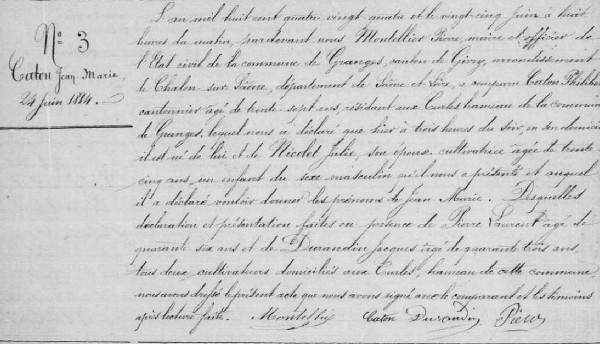 N° 3
Caton Jean-Marie
24 Juin 1884.
L'an mil huit cent quatre vingt quatre et le vingt-cinq juin à huit
heures du matin, pardevant nous Montellier Pierre, maire et officier de
l'Etat civil de la commune de Granges, canton de Givry, arrondissement
de Chalon-sur-Saône, département de Saône et Loire, a comparu Caton Philibert
cantonnier âgé de trente sept ans, résidant aux Curles hameau de la commune
de Granges, lequel nous a déclaré que hier à trois heures du soir, en son domicile
il est né de lui et de Nicolet Julie, son épouse cultivatrice âgée de trente
cinq ans, un enfant du sexe masculin qu'il nous a présenté et auquel
il a déclaré vouloir donner les prénoms de Jean Marie. Desquelles
déclaration et présentation faites en présence de Pierre Laurent âgé de
quarante six ans et de Durandin Jacques âgé de quarante trois ans,
tous deux cultivateurs domiciliés aux Curles hameau de cette commune,
nous avons dressé le présent acte que nous avons signé avec le comparant et les témoins
après lecture faite. Montellier Caton Durandin Pierre